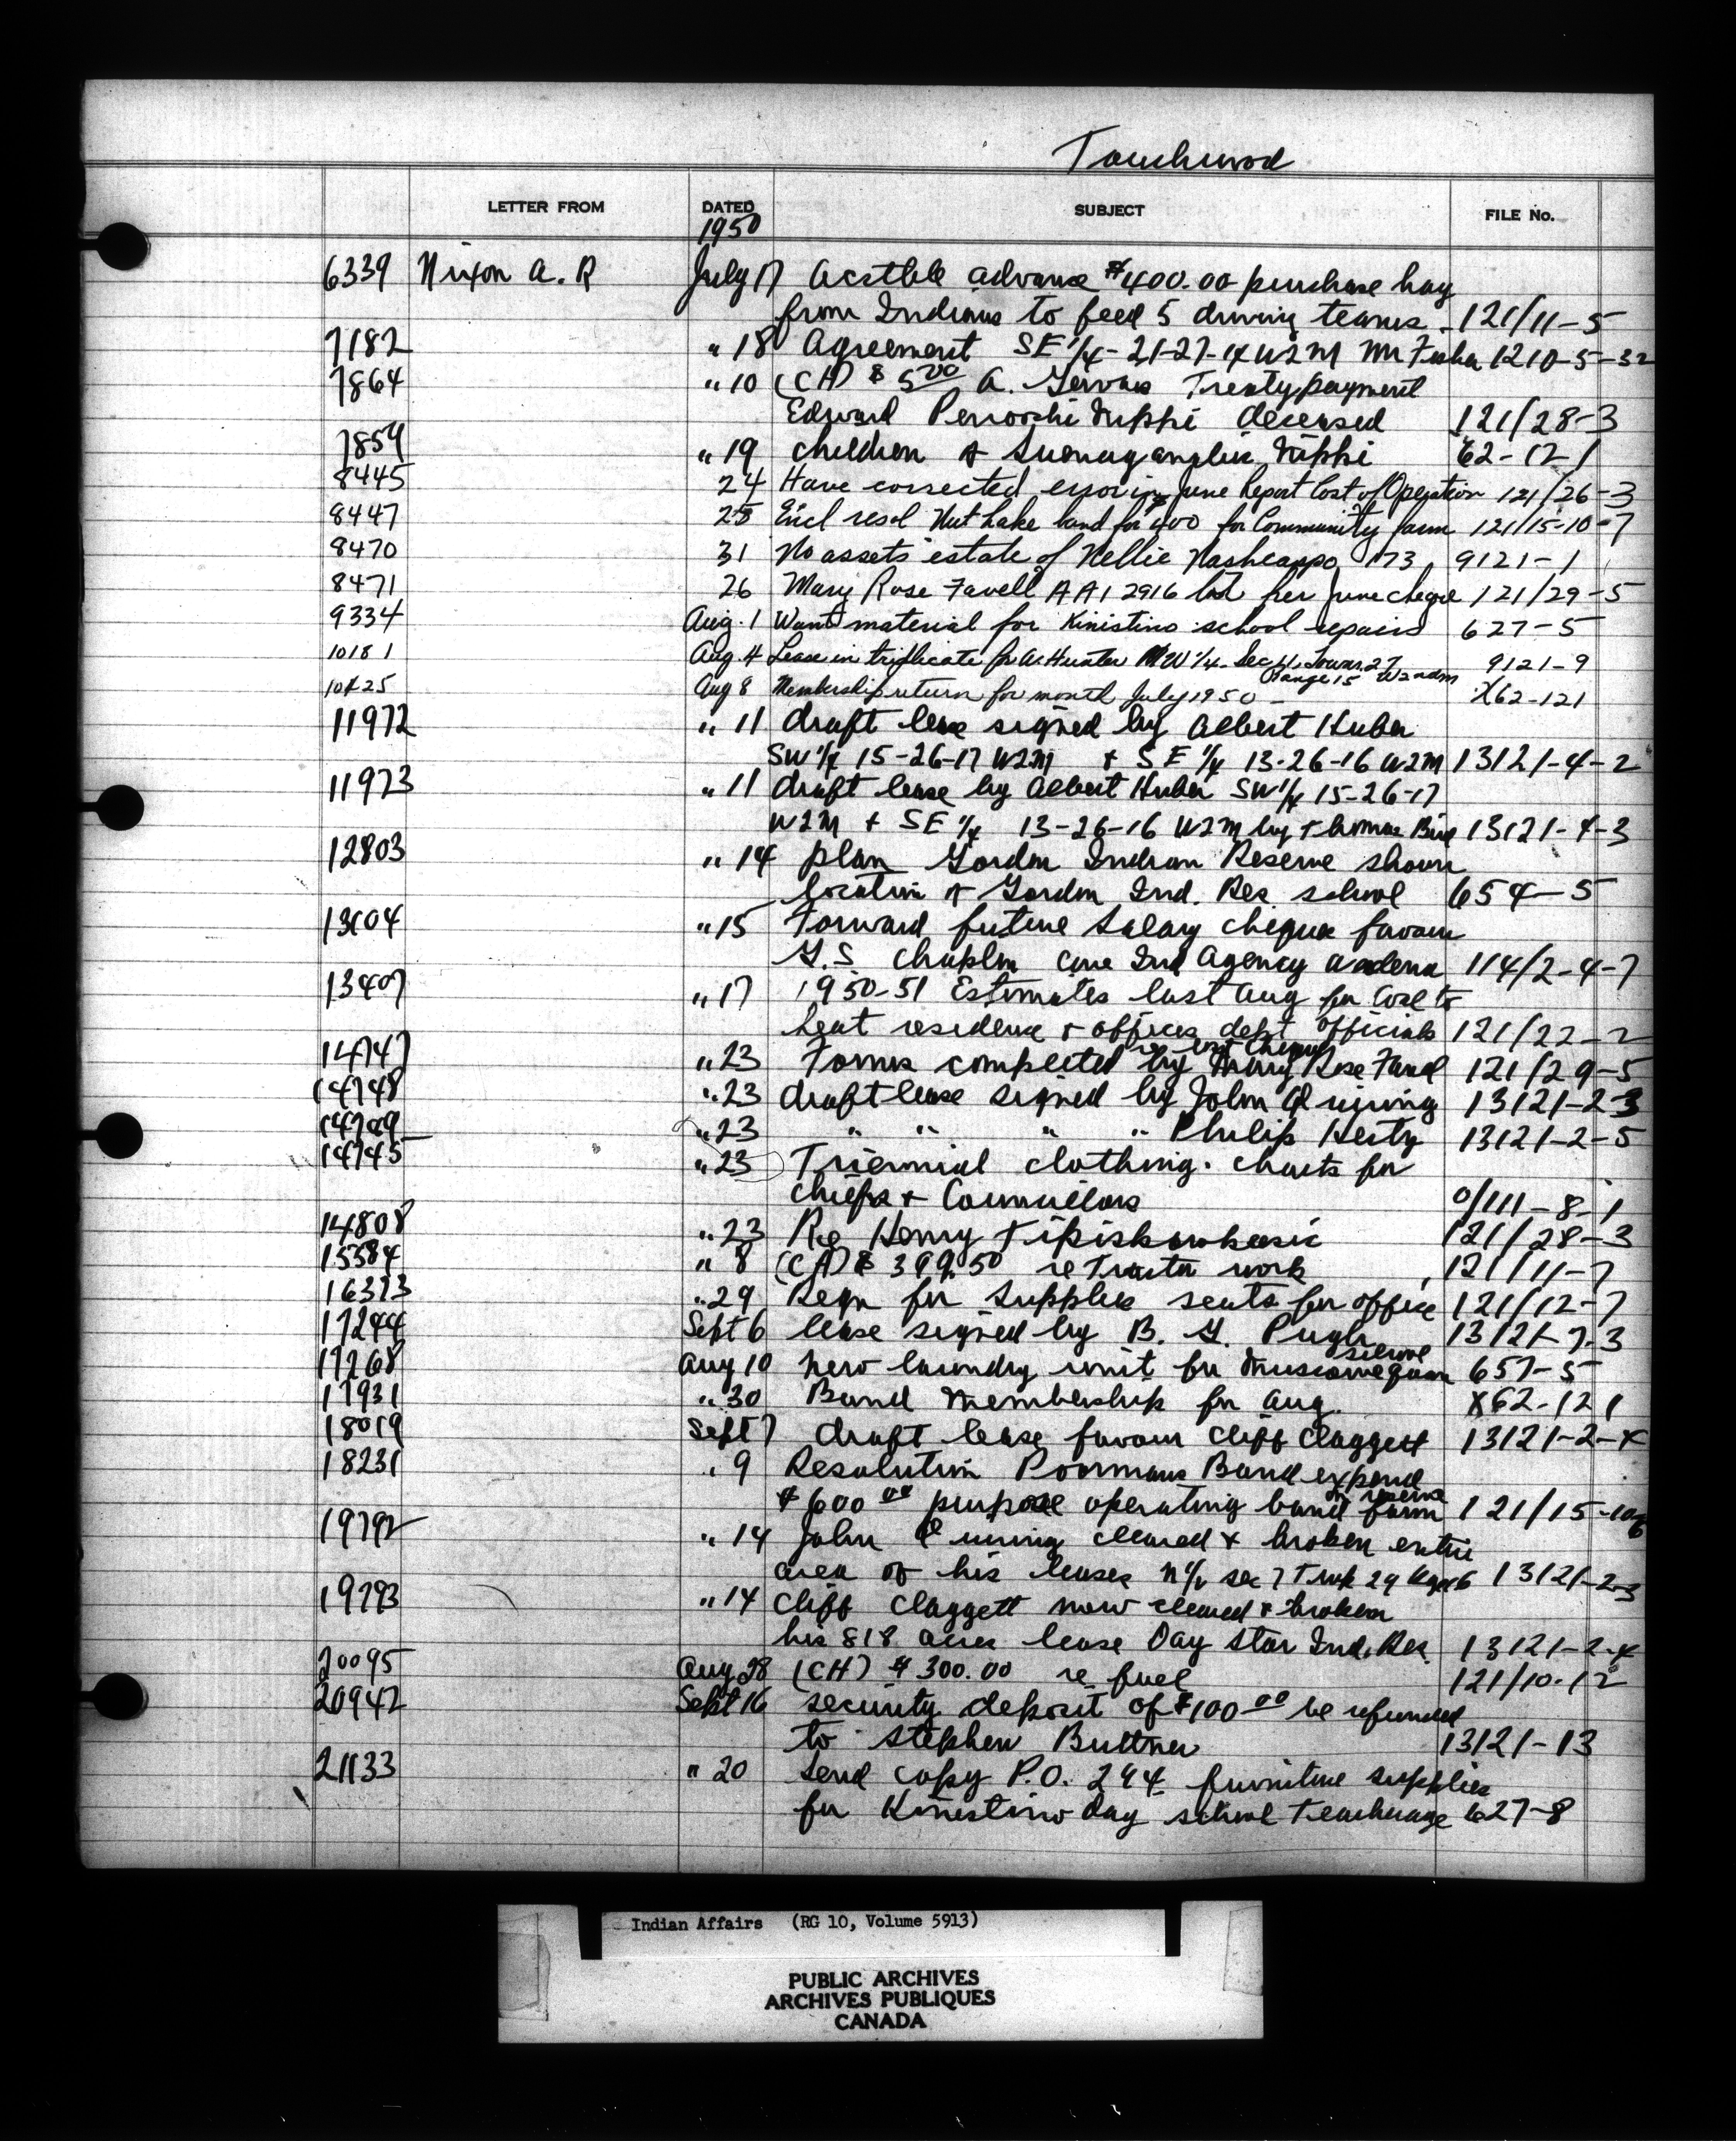 Touchwood
LETTER FROM DATED SUBJECT FILE No.
1950
6339 Nixon A. R July 17 Acctble advance $400.00 purchase hay
from Indians to feed 5 driving teams 121/11-5
7182 " 18 Agreement SE 1/4-21-27-14 W2M Mr 1210-5-32
7864 " 10 (CH) $ 5 00 A. Gervais Treaty payment
Edward Nippi deceased 121/28-3
7859 " 19 children of Nippi 62-121
8445 24 Have corrected error in June Report Cost of Operation 121/26-3
8447 25 Encl resol Nut Lake band for $400 for Community farm 121/15-10-7
8470 31 No assets estate of Nellie 173 9121-1
8471 26 Mary Rose Favell AA1 2916 lost her June cheque 121/29-5
9334 Aug. 1 Want material for Kinistino school repairs 627-5
10181 Aug. 4 Lease in triplicate for A. Hunter NW 1/4 Sec 4, Town. 27 9121-9
Range 15 W2ndm
10425 Aug 8 Membership return for month July 1950 - X62-121
11972 " 11 draft lease signed by Albert Huber
SW 1/4 15-26-17 W2M + SE 1/4 13-26-16 W2M 13121-4-2
11973 " 11 draft lease by Albert Huber SW 1/4 15-26-17
W2M + SE 1/4 13-26-16 W2M by Thomas Bird 13121-4-3
12803 " 14 plan Gordon Indian Reserve shown
location of Gordon Ind. Res. school 654-5
13104 " 15 Forward future salary cheques favour
G.S Chaplin care Ind Agency Wadena 114/2-4-7
13407 " 17 1950-51 Estimates last Aug for Coal to
heat residence + offices dept officials 121/22-2
re lost cheque
14747 " 23 Forms completed by Mary Rose Favel 121/29-5
14748 " 23 draft lease signed by John 13121-2-3
14749 " 23 " " " " Philip Hesty 13121-2-5
14745 " 23 Triennial clothing. charts for
Chiefs + Councillors 0/111-8-1
14808 " 23 Re Henry 121/28-3
15584 " 8 (CH) $ 399.50 re Tractor work 121/11-7
16373 " 29 Reqn for supplies seats for office 121/12-7
17244 Sept 6 lease signed by B. G. Pugh 13121-7-3
school
17268 Aug 10 new laundry unit for Muscowequan 657-5
17931 " 30 Band Membership for Aug. X62-121
18019 Sept 7 draft lease favour Cliff Claggett 13121-2-4
18231 " 9 Resolution Poormans Band expend
on reserve
$600 00 purpose operating band farm 121/15-10-6
19792 " 14 John cleared + broken entire
area of his leases N 1/2 sec 7 Twp 29 Rge 16 13121-2-3
19793 " 14 Cliff Claggett now cleared + broken
his 818 acres lease Day Star Ind. Res. 13121-2-4
20095 Aug 28 (CH) $ 300.00 re fuel 121/10-12
20942 Sept 16 security deposit of $100 00 be refunded
to Stephen Buttner 13121-13
21133 " 20 Send copy P.O. 294 furniture supplies
for Kinestino day school teacherage 627-8
Indian Affairs (RG 10, Volume 5913)
PUBLIC ARCHIVES
ARCHIVES PUBLIQUES
CANADA